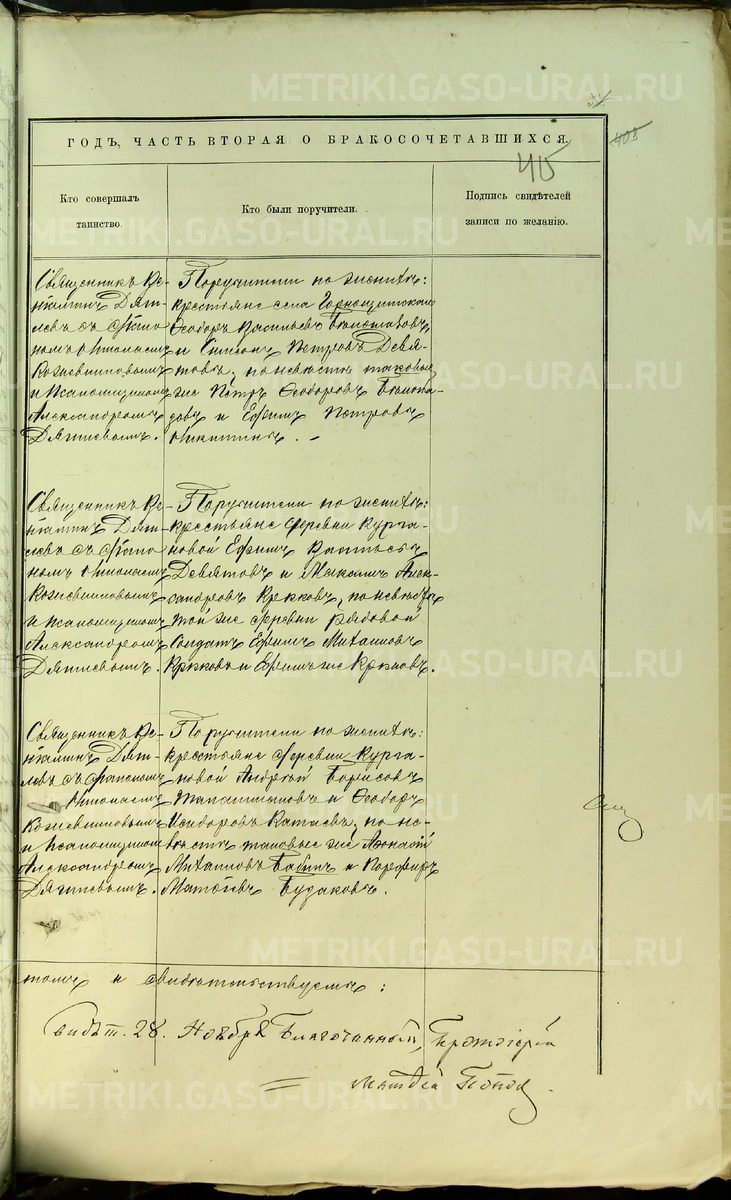 METRIKI.GASO-URAL.RU
408
ГОДЪ, ЧАСТЬ ВТОРАЯ О БРАКОСОЧЕТАВШИХСЯ.
40
Кто совершалъ
таинство.
Кто были поручители.
Подпись свидѣтелей
записи по желанію.
Священникъ Ве-
ніаминъ Дяги-
левъ съ діако
номъ Николаемъ
Кожевниковымъ
и псаломщикомъ
Александромъ
Дягилевымъ.
Поручители по женихѣ:
крестьяне села Горнощитскаго
Ѳеодоръ Васильевъ
и Симеонъ Петровъ Девя-
товъ; по невѣстѣ таковые
же Петръ Ѳеодоровъ
и Ефимъ Петровъ
Никитинъ.
Священникъ Ве-
ніаминъ Дяги-
левъ съ діако
номъ Николаемъ
Кожевниковымъ
и псаломщикомъ
Александромъ
Дягилевымъ.
Поручители по женихѣ:
крестьяне деревни Курга-
новой Ефимъ
Девятовъ и Максимъ Алек-
сандровъ Крюковъ, по невѣстѣ
той же деревни рядовой
Солдатъ Ефимъ Михаиловъ
Крюковъ и Ефимъ же Крюковъ.
Священникъ Ве-
ніаминъ Дяги-
левъ съ діакономъ
Николаемъ
Кожевниковымъ
и псаломщикомъ
Александромъ
Дягилевымъ.
Поручители по женихѣ:
крестьяне деревни Курга-
новой Андрей Борисовъ
и Ѳеодоръ
Исидоровъ Катаевъ; по не-
вѣстѣ таковые же Аѳанасій
Михаиловъ Бабинъ и Порфирій
Матѳіевъ Будаковъ.
томъ и свидѣтельствуемъ:
28. Ноября Благочинный, Протоіерей
Матѳей Поповъ.